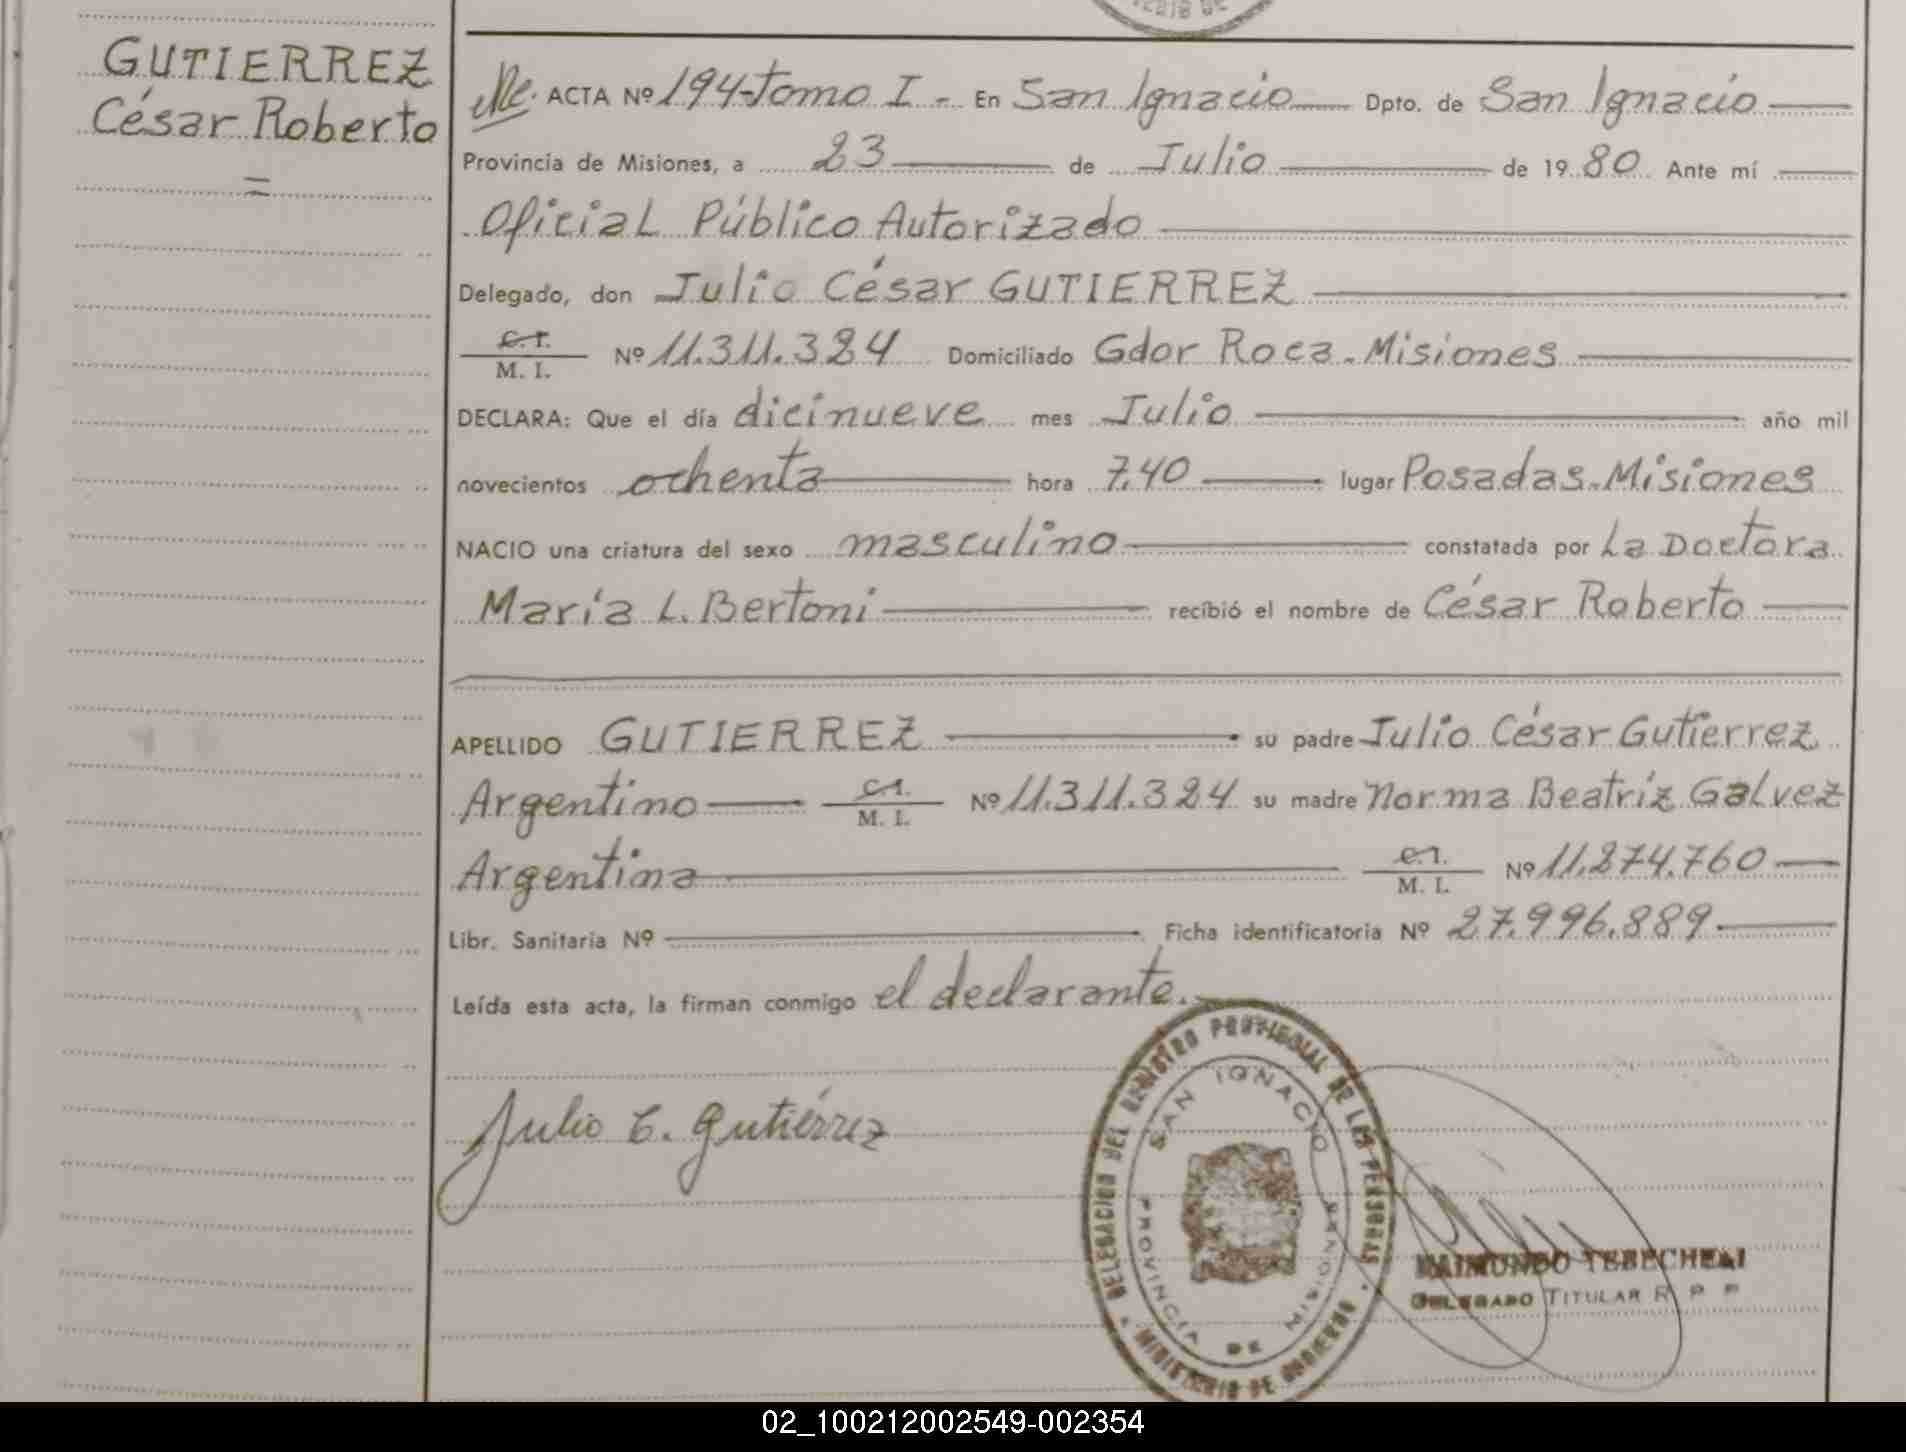 GUTIERREZ
César Roberto
=
ACTA Nº 194-Tomo I - En San Ignacio Dpto. de San Ignacio
Provincia de Misiones, a 23 de Julio de 19 80 Ante mí
Oficial Público Autorizado
Delegado, don Julio César GUTIERREZ
C.I.
M. I. Nº 11.311.324 Domiciliado Gdor Roca-Misiones
DECLARA: Que el día dicinueve mes Julio año mil
novecientos ochenta hora 7,40 lugar Posadas-Misiones
NACIO una criatura del sexo masculino constatada por La Doctora
María L. Bertoni recibió el nombre de César Roberto
APELLIDO GUTIERREZ su padre Julio César Gutierrez
Argentino C.I. M. I. Nº 11.311.324 su madre Norma Beatriz Galvez
Argentina C.I. M. I. Nº 11.274.760
Libr. Sanitaria Nº Ficha identificatoria Nº 27.996.889
Leída esta acta, la firman conmigo el declarante.
Julio C. Gutiérrez
DELEGACION DEL REGISTRO PROVINCIAL DE LAS PERSONAS
SAN IGNACIO
PROVINCIA DE MISIONES
MINISTERIO DE GOBIERNO
RAIMUNDO
DELEGADO TITULAR R P P
02_100212002549-002354